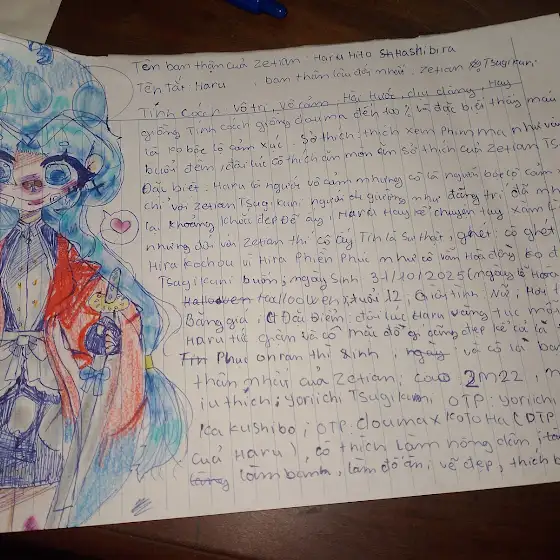 Tên bạn thân của Zetian: Haru Hito Shhashibira
Tên Tắt Haru, bạn thân lâu đời nhất. Zetian Tsugikuni.
Tính Cách vô tri, vô cảm, Hài Hước, dịu dàng, Hay
giống Tính cách giống douma đến 100% và đặc biệt thấy mái
là ko bộc lộ cảm xúc. Sở thích: thích xem phim ma như vào
buổi đêm, đôi lúc cô thích ăn món ăn sở thích của Zetian Ts
Đặc biệt. Haru là người vô cảm nhưng cô là người bộc cô cảm
chỉ với Zetian Tsugikuni người chị gương như đãng trí đã m
lại khoảng khắc đẹp đẽ ấy, Haru Hay kể chuyện tuy xàm
nhưng đối với Zetian thì cô ấy Tin là Sự thật, ghét: cô ghét
Hira Kochou vì Hira Phiền Phức như cô vẫn Hòa đồng ko
Tsugikuni buồn; ngày Sinh 31/10/2025 (ngày lễ
Halloween Hallooween, tuổi 12, Giới tính Nữ; Hơi t
Băng giá; Đặc Điểm: đôi lúc Haru văng tục
Haru tức giận và cô mặc đồ gì cũng đẹp kể cả là
Phục onran thì Sinh, ngày và cô là bạn
thân nhất của Zetian; cao 2m22,
iu thích; Yoriichi Tsugikuni, OTP: Yoriichi
Kakushibo; OTP. douma x KOTOHa (OTP
của Haru), cô thích làm nông dân
làm bánh, làm đồ ăn; vẽ đẹp, thích